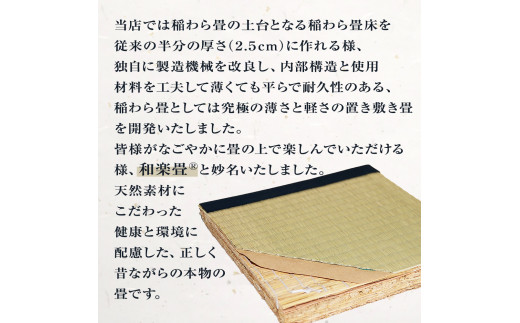 当店では稲わら畳の土台となる稲わら畳床を
従来の半分の厚さ(2.5cm)に作れる様、
独自に製造機械を改良し、内部構造と使用
材料を工夫して薄くても平らで耐久性のある、
稲わら畳としては究極の薄さと軽さの置き敷き畳
を開発いたしました。
皆様がなごやかに畳の上で楽しんでいただける
様、和楽畳®と妙名いたしました。
天然素材に
こだわった
健康と環境に
配慮した、正しく
昔ながらの本物の
畳です。